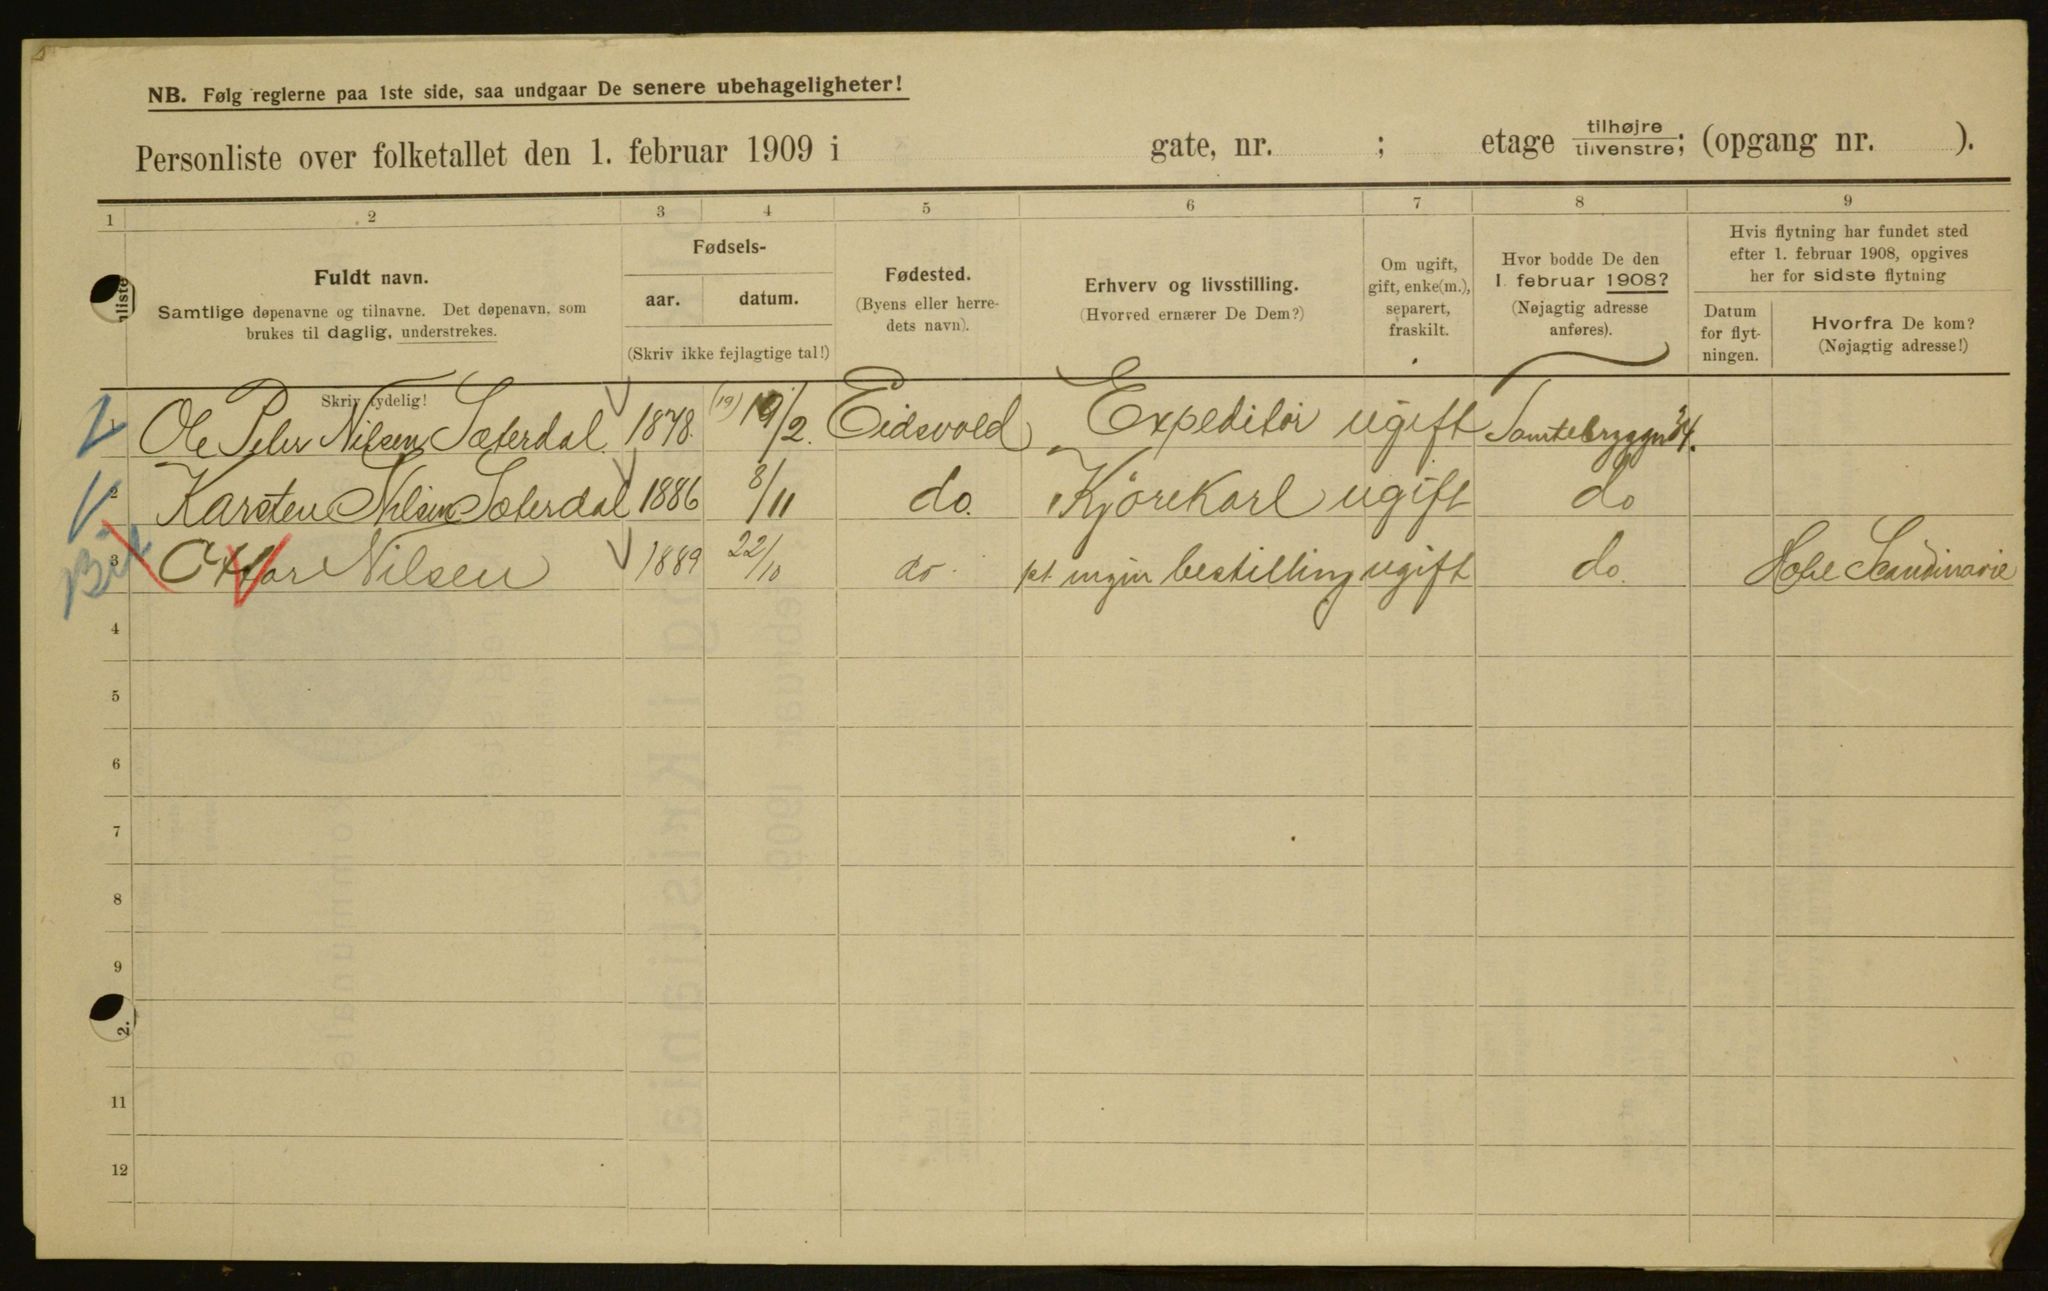 NB. Følg reglerne paa 1ste side, saa undgaar De senere ubehageligheter!
Personliste over folketallet den 1. februar 1909 i gate, nr. ; etage tilhøjre tilvenstre; (opgang nr. ).
1 2 3 4 5 6 7 8 9
Fuldt navn.
Samtlige døpenavne og tilnavne. Det døpenavn, som
brukes til daglig, understrekes.
Fødsels-
aar. datum.
(Skriv ikke fejlagtige tal!)
Fødested.
(Byens eller herre-
dets navn).
Erhverv og livsstilling.
(Hvorved ernærer De Dem?)
Om ugift,
gift, enke(m.),
separert,
fraskilt.
Hvor bodde De den
1. februar 1908?
(Nøjagtig adresse
anføres).
Hvis flytning har fundet sted
efter 1. februar 1908, opgives
her for sidste flytning
Datum
for flyt-
ningen.
Hvorfra De kom?
(Nøjagtig adresse!)
Skriv tydelig!
1 Ole Peter Nilsen Sæterdal 1878. (19) 19/2. Eidsvold Expeditør ugift Tomtebryggn 34.
2 Karsten Nilsen Sæterdal 1886 8/11 do. Kjörekarl ugift do
3 Ottar Nilsen 1889 22/10 do. pt ingen bestilling ugift do. Hotel Scandinavie
4
5
6
7
8
9
2.
11
12